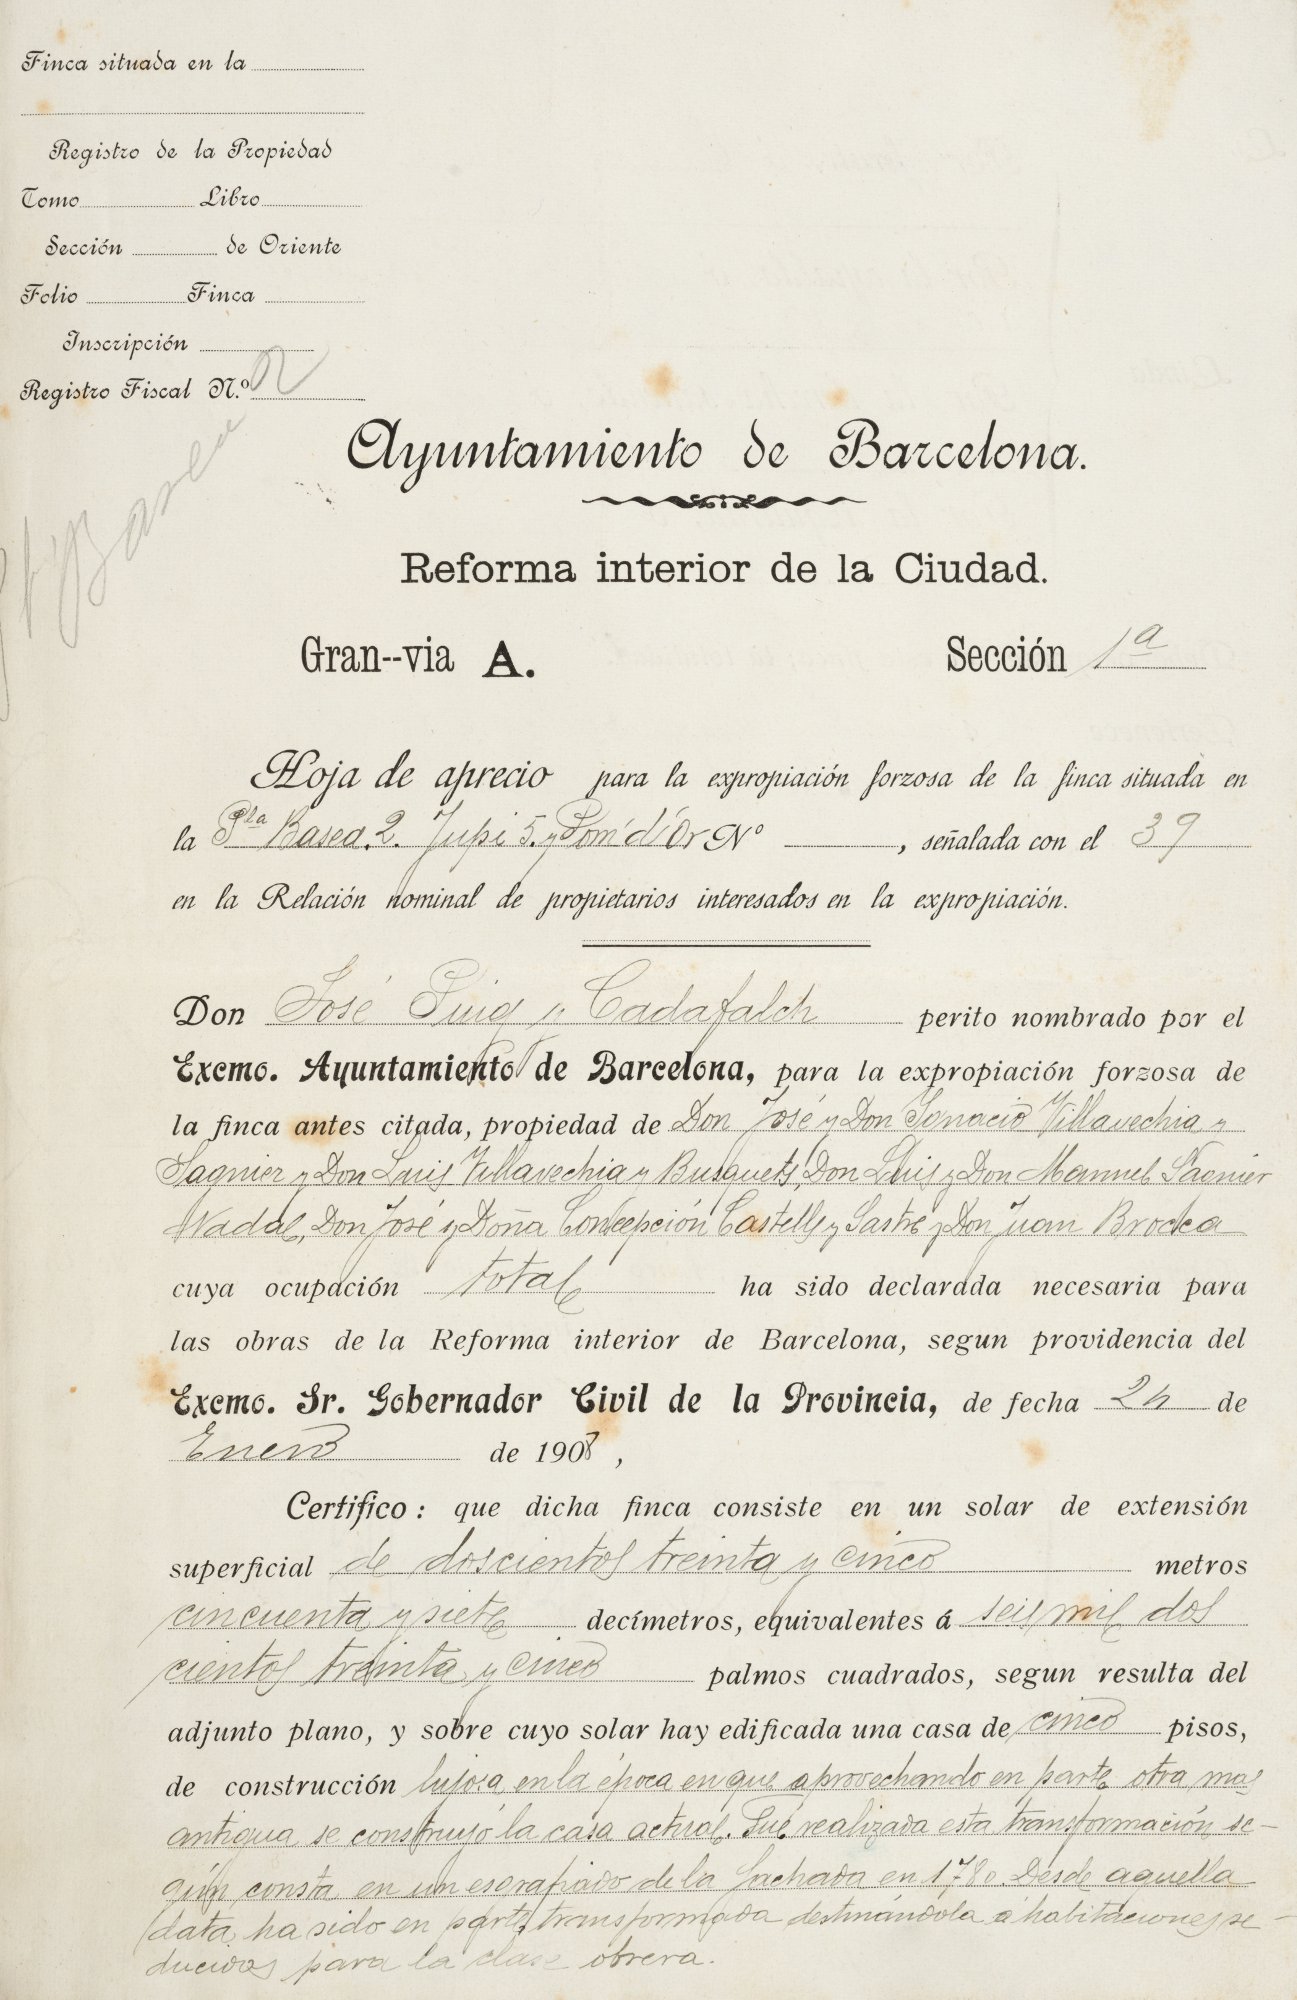 Finca situada en la
Registro de la Propiedad
Tomo Libro
Sección de Oriente
Folio Finca
Inscripción
Registro Fiscal N.º 2
Basea
Ayuntamiento de Barcelona.
Reforma interior de la Ciudad.
Gran--via A. Sección 1ª
Hoja de aprecio para la expropiación forzosa de la finca situada en
la Pla Basea. 2. Jupi 5. y Pom' d'Or Nº , señalada con el 39
en la Relación nominal de propietarios interesados en la expropiación.
Don José Puig y Cadafalch perito nombrado por el
Excmo. Ayuntamiento de Barcelona, para la expropiación forzosa de
la finca antes citada, propiedad de Don José y Don Ignacio Villavechia y
Sagnier y Don Luis Villavechia y Busquets, Don Luis y Don Manuel Sagnier
Nadal, Don José y Doña Concepción Castells y Sastre y Don Juan Brocka
cuya ocupación total ha sido declarada necesaria para
las obras de la Reforma interior de Barcelona, segun providencia del
Excmo. Sr. Gobernador Civil de la Provincia, de fecha 24 de
Enero de 1908,
Certifico: que dicha finca consiste en un solar de extensión
superficial de doscientos treinta y cinco metros
cincuenta y siete decímetros, equivalentes á seis mil dos
cientos treinta y cinco palmos cuadrados, segun resulta del
adjunto plano, y sobre cuyo solar hay edificada una casa de cinco pisos,
de construcción lujosa en la época en que aprovechando en parte otra mas
antigua se construyó la casa actual. Fué realizada esta transformación se-
gún consta en un esgrafiado de la fachada en 1780. Desde aquella
data ha sido en parte transformada destinándola á habitaciones re-
ducidas para la clase obrera.